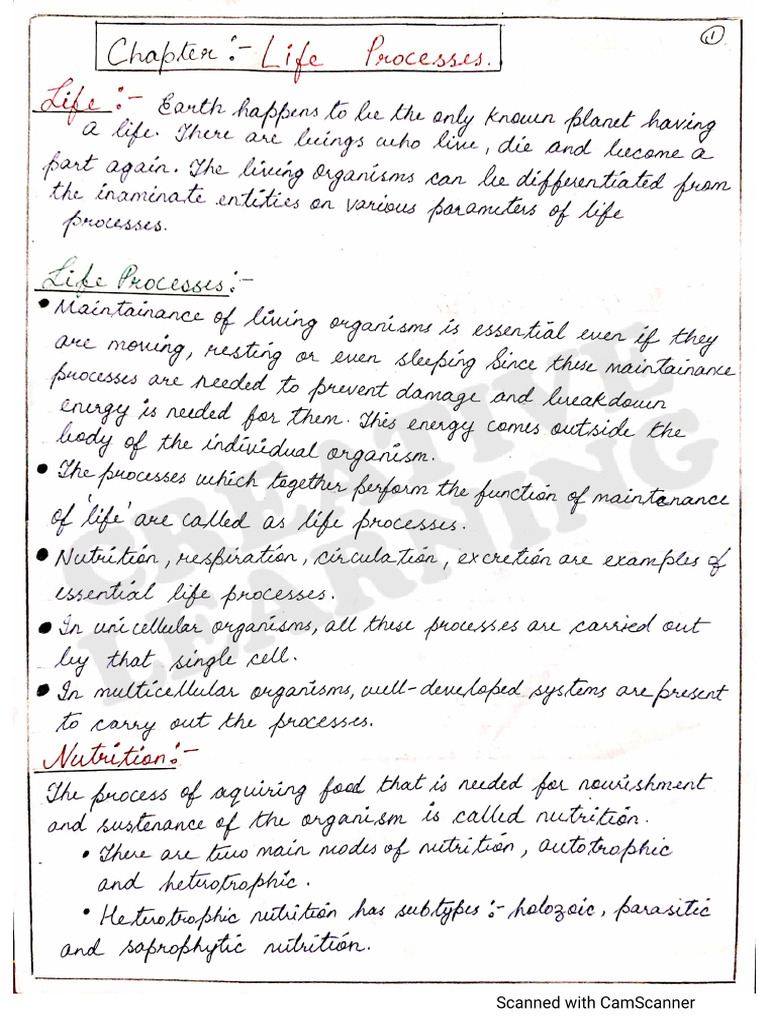 1
Chapter :- Life Processes.
Life :- Earth happens to be the only known planet having
a life. There are beings who live, die and become a
part again. The living organisms can be differentiated from
the inaminate entities on various parameters of life
processes.
Life Processes :-
• Maintainance of living organisms is essential even if they
are moving, resting or even sleeping Since these maintainance
processes are needed to prevent damage and breakdown
energy is needed for them. This energy comes outside the
body of the individual organism.
• The processes which together perform the function of maintenance
of 'life' are called as life processes.
• Nutrition, respiration, circulation, excretion are examples of
essential life processes.
• In unicellular organisms, all these processes are carried out
by that single cell.
• In multicellular organisms, well-developed systems are present
to carry out the processes.
Nutrition :-
The process of aquiring food that is needed for nourishment
and sustenance of the organism is called nutrition.
• There are two main modes of nutrition, autotrophic
and heterotrophic.
• Heterotrophic nutrition has subtypes :- holozoic, parasitic
and saprophytic nutrition.
CREATIVE
LEARNING
Scanned with CamScanner